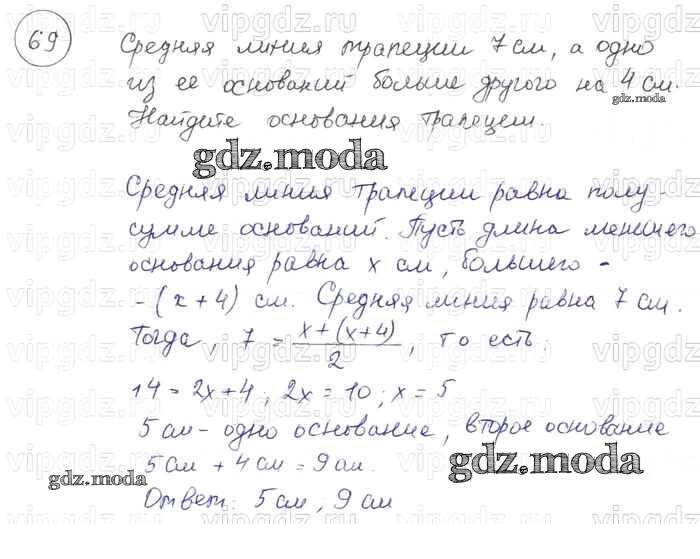 69
Средняя линия трапеции 7 см, а одно
из ее оснований больше другого на 4 см.
gdz.moda
Найдите основания трапеции.
gdz.moda
Средняя линия трапеции равна полу-
сумме оснований. Пусть длина меншего
основания равна x см, большего -
- (x + 4) см. Средняя линия равна 7 см.
Тогда, 7 = x + (x + 4) / 2, то есть:
14 = 2x + 4; 2x = 10; x = 5
5 см - одно основание, второе основание
5 см + 4 см = 9 см.
gdz.moda
gdz.moda
Ответ: 5 см; 9 см
vipgdz.ru